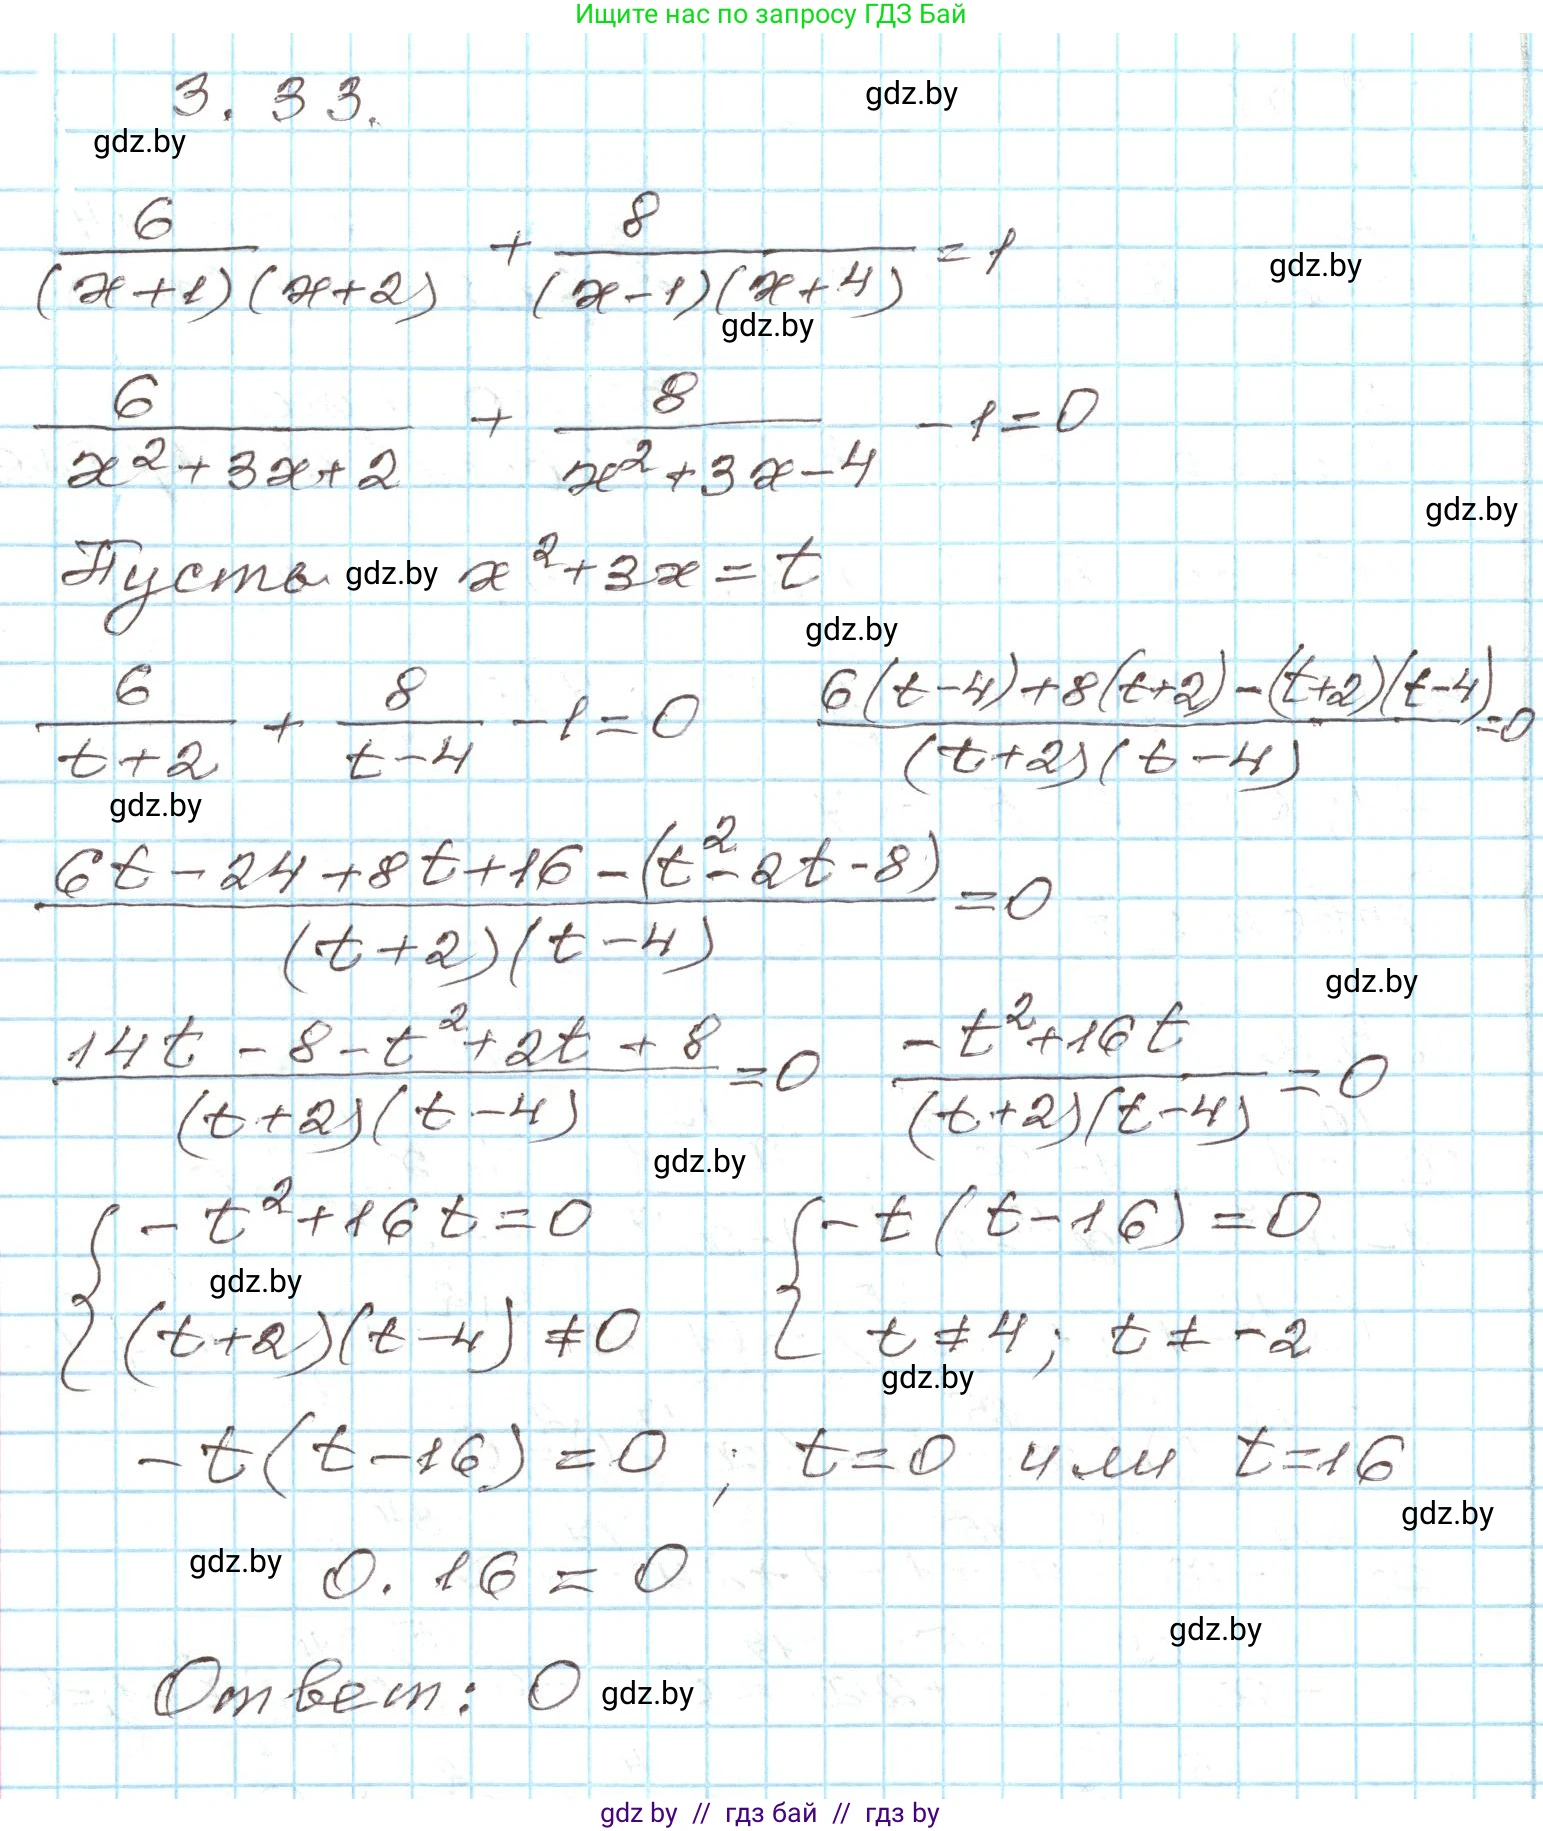 Ищите нас по запросу ГДЗ Бай
3.33.
gdz.by
gdz.by
6/((x+1)(x+2)) + 8/((x-1)(x+4)) = 1
gdz.by
gdz.by
6/(x²+3x+2) + 8/(x²+3x-4) - 1 = 0
gdz.by
Пусть gdz.by x²+3x=t
gdz.by
6/(t+2) + 8/(t-4) - 1 = 0 (6(t-4)+8(t+2)-(t+2)(t-4))/((t+2)(t-4)) = 0
gdz.by
(6t-24+8t+16-(t²-2t-8))/((t+2)(t-4)) = 0
gdz.by
(14t-8-t²+2t+8)/((t+2)(t-4)) = 0 (-t²+16t)/((t+2)(t-4)) = 0
gdz.by
{ -t²+16t=0 { -t(t-16)=0
gdz.by
(t+2)(t-4)≠0 t≠4; t≠-2
gdz.by
-t(t-16)=0; t=0 или t=16
gdz.by
gdz.by 0·16=0
gdz.by
Ответ: 0 gdz.by
gdz by // гдз бай // гдз by